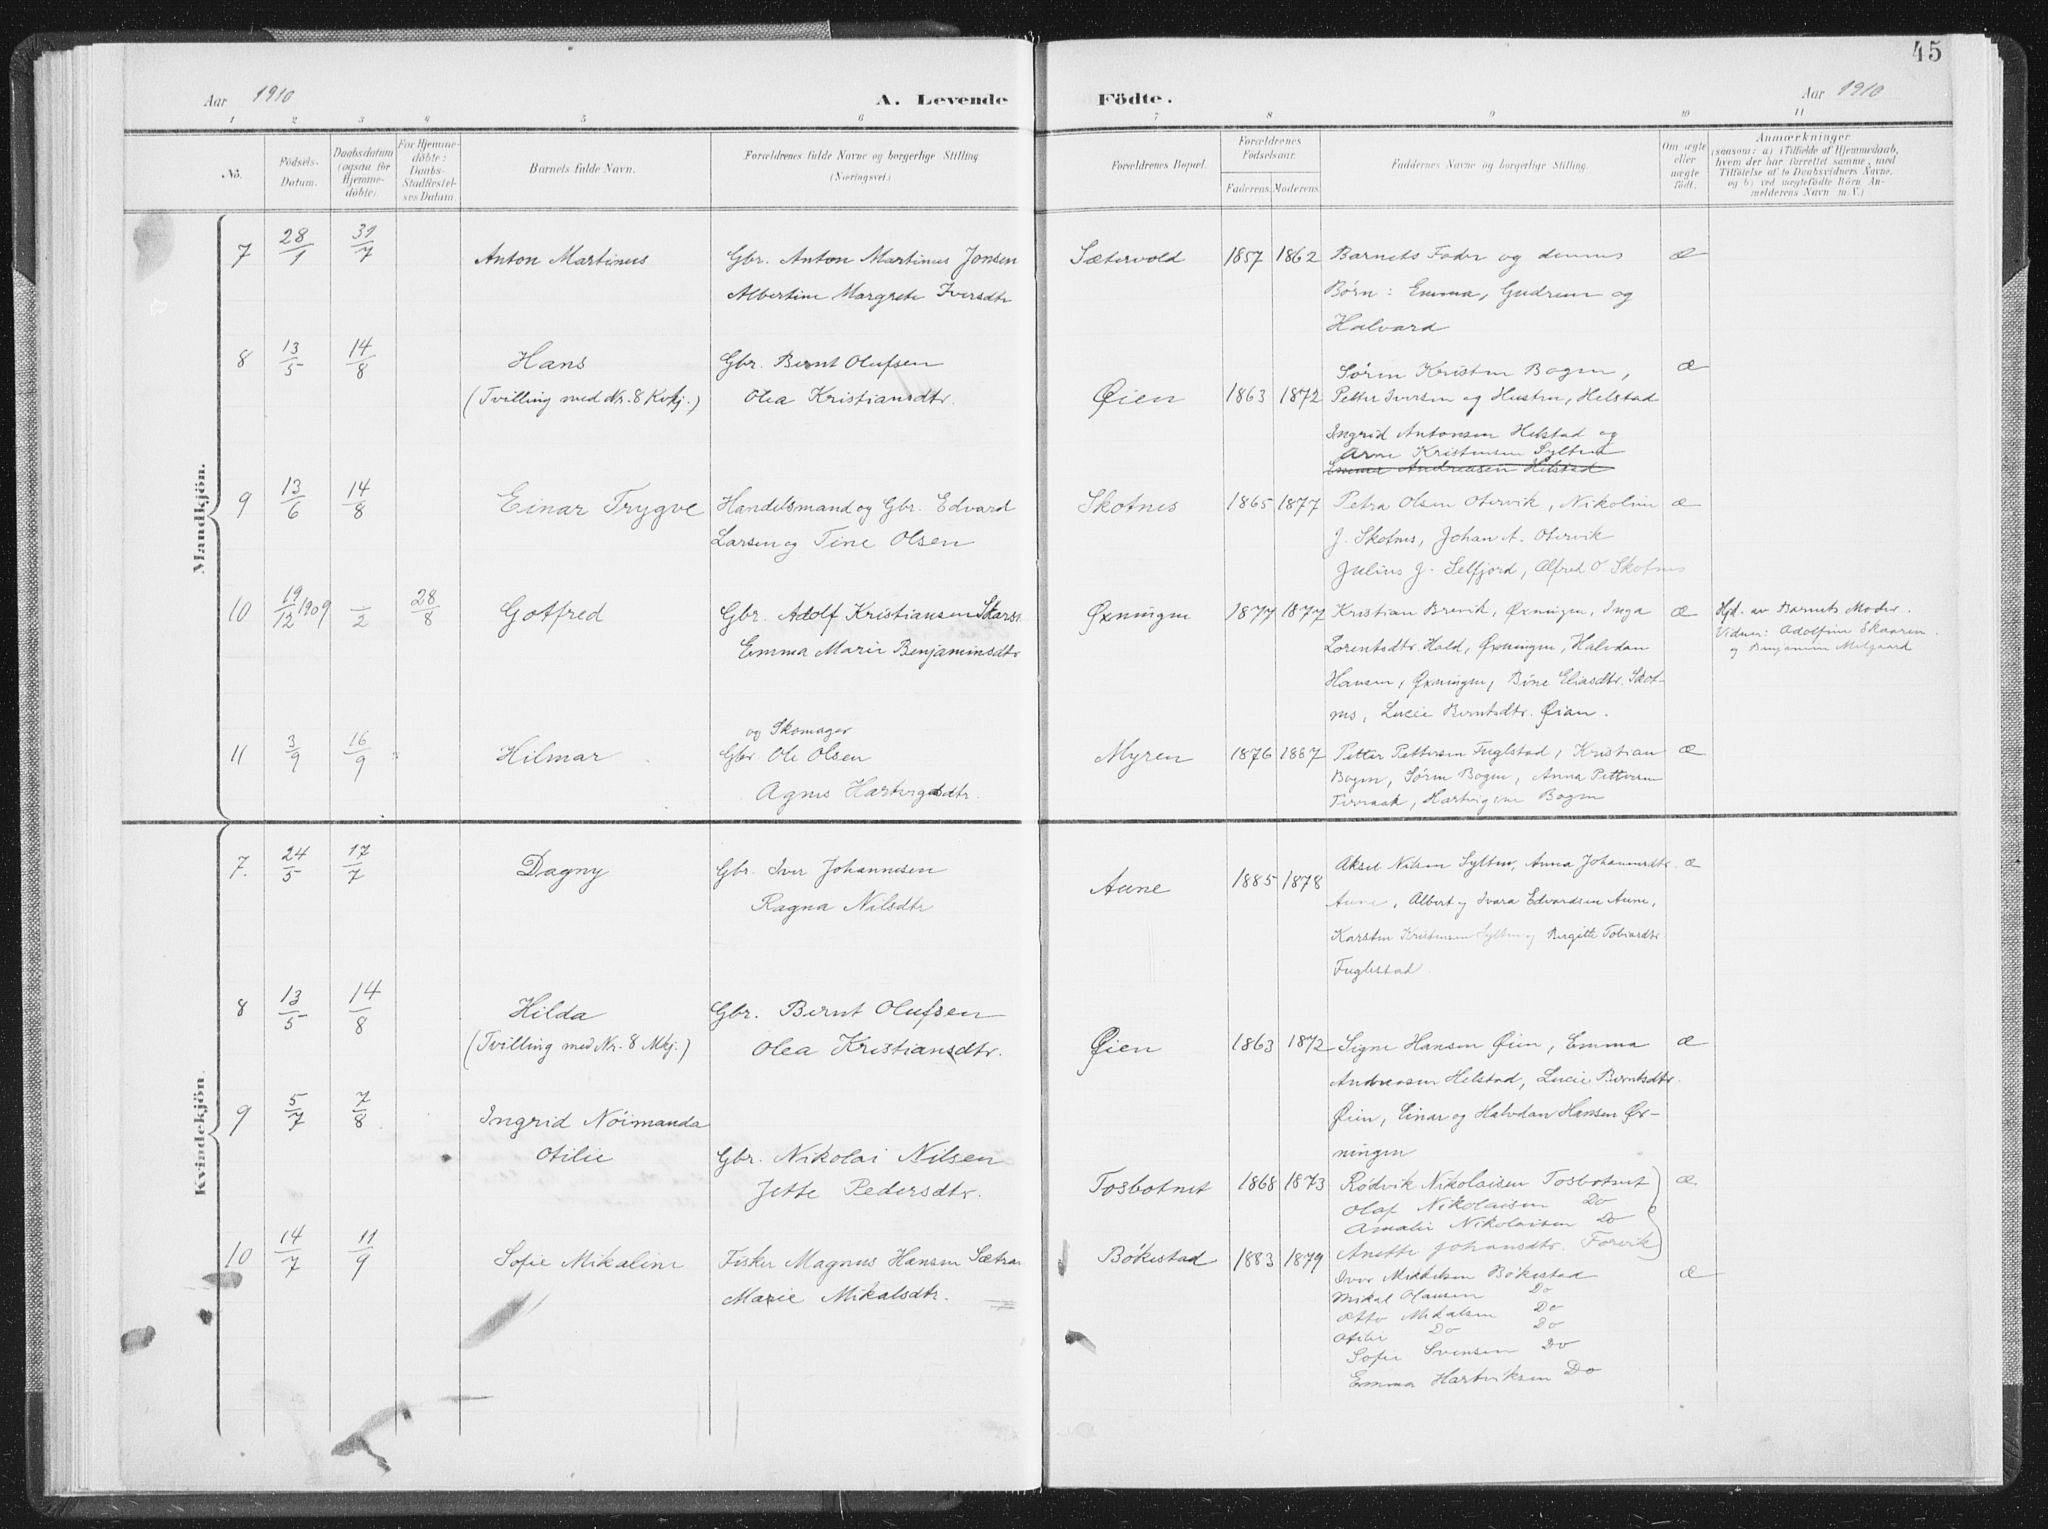 45
Aar 1910
A. Levende Födte.
Aar 1910
1 2 3 4 5 6 7 8 9 10 11
No.
Födsels-Datum.
Daabsdatum (ogsaa for Hjemme-döbte)
For Hjemme-döbte: Daabs-Stadfæstel-ses Datum
Barnets fulde Navn.
Forældrenes fulde Navne og borgerlige Stilling (Næringsvei.)
Forældrenes Bopæl.
Forældrenes Födselsaar.
Faderens. Moderens.
Faddernes Navne og borgerlige Stilling.
Om ægte eller uægte födt.
Anmærkninger
(saasom: a) i Tilfælde af Hjemmedaab,
hvem der har forrettet samme, med
Tilföielse af to Daabsvidners Navne,
og b) ved uægtefödte Börn An-
melderens Navn m. V.)
Mandkjön.
7 28/1 31/7 Anton Martinus Gbr. Anton Martinus Jonsen Sætervold 1857 1862 Barnets Fader og dennes æ
Albertine Margrete Iversdtr Børn: Emma, Gudrun og
Halvard
8 13/5 14/8 Hans Gbr. Bernt Olufsen Sørin Kristin Bogen, æ
(Tvilling med Nr. 8 Kvkj.) Olea Kristiansdtr. Øien 1863 1872 Petter Iversen og Hustru, Helstad
Ingrid Antonsen Helstad og
Arne Kristensen Sylten
Emma Andreasen Helstad
9 13/6 14/8 Einar Trygve Handelsmand og Gbr. Edvard Skotnes 1865 1877 Petra Olsen Otervik, Nikoline æ
Larsen og Tine Olsen J. Skotnes, Johan A. Otervik
Julius J. Selfjord, Alfred O Skotnes
10 19/12 1909 -/2 28/8 Gotfred Gbr. Adolf Kristiansen Øxningen 1877 1877 Kristian Brevik, Øxningen, Inga æ Hjd. av Barnets Moder.
Emma Marie Benjaminsdtr Lorentsdtr. Hald, Øxningen, Halvdan Vidner: Adolfine Skaaren
og Benjamin Melgaard
Hansen, Øxningen, Bine Eliasdtr. Skot-
nes, Lucie Berntsdtr. Øien.
og Skomager
11 3/9 16/9 Hilmar Gbr. Ole Olsen Myren 1876 1887 Petter Pettersen Fuglstad, Kristian æ
Agnes Hartvigsdtr. Bogen, Sørin Bogen, Anna Pettersen
Terraak, Hartvigine Bogen
Kvindekjön.
7. 24/5 17/7 Dagny Gbr. Iver Johannesen Aune 1885 1878 Aksel Nilsen Sylten, Anna Johannesdtr. æ
Ragna Nilsdtr Aune, Albert og Ivara Edvardsen Aune,
Karsten Kristensen Sylten og Birgitte Tobiasdtr
Fuglestad
8 13/5 14/8 Hilda Gbr. Bernt Olufsen
(Tvilling med Nr. 8 Mkj.) Olea Kristiansdtr. Øien 1863 1872 Signe Hansen Øien, Emma æ
Andreasen Helstad, Lucie Berntsdtr.
Øien, Einar og Halvdan Hansen Øx-
ningen
9 5/7 7/8 Ingrid Nöimanda
Otilie Gbr. Nikolai Nilsen
Jette Pedersdtr. Tosbotnet 1868 1873 Rødvik Nikolaisen Tosbotnet æ
Olaf Nikolaisen Do
Amalie Nikolaisen Do
Anette Johansdtr. Forvik
10 14/7 11/9 Sofie Mikaline Fisker Magnus Hansen Sætran Bökestad 1883 1879
Marie Mikalsdtr. Iver Mikkelsen Bökestad æ
Mikal Olausen Do
Otto Mikalsen Do
Otilie Do Do
Sofie Svensen Do
Emma Hartviksen Do